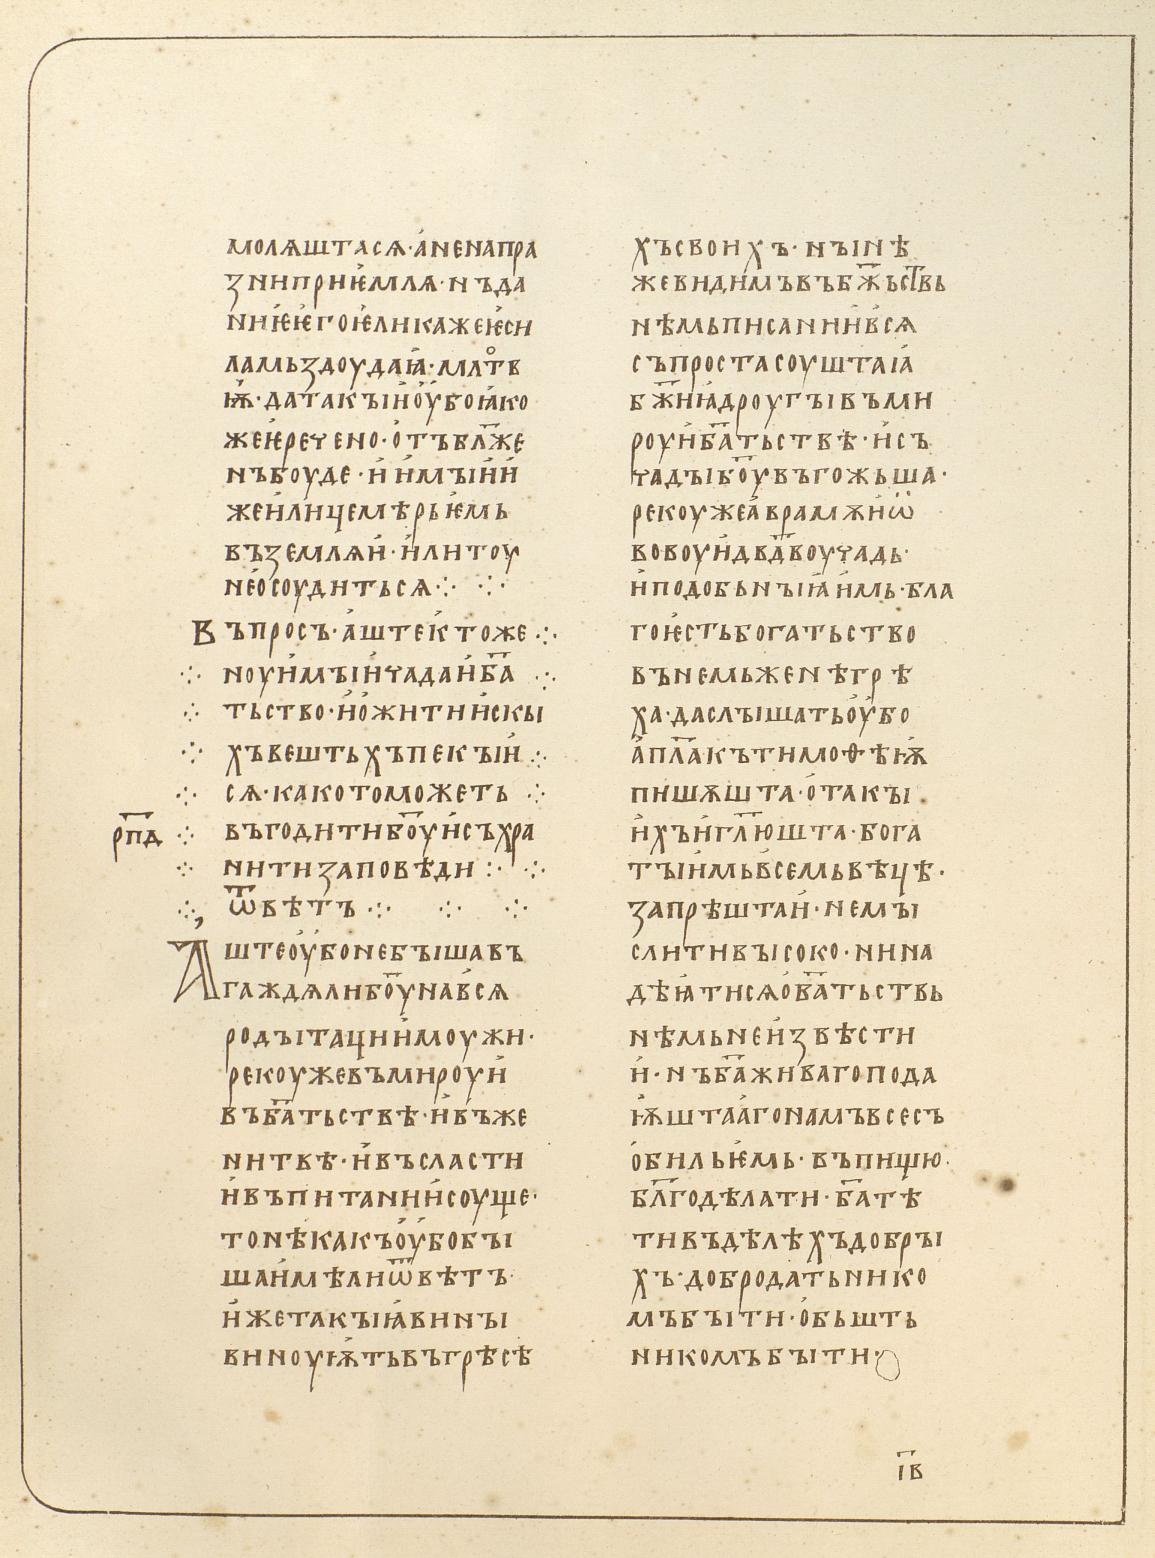 молѫштасѧ·а҆ненапра
ꙁнипри҆ѥмлѧ·нъда
ни҆ѥ҆ѥго҆ѥликаже҆ѥси
ламьꙁдоуда҆ꙗ·млтв
ѭ҆·датакꙑи҆оу҆бо҆ꙗко
же҆ѥречено·о҆тъбл҃же
нъбоуде·и҆и҆мꙑи҆и҆
жеи҆лицемѣрь҆ѥмь
въꙁемлѧи҆·и҆литоу
нео҆соудитьсѧ჻ ჻
Въпросъ·а҆штек҆тоже჻
ноуи҆мꙑи҆чадаи҆ба҃
тьство·и҆о҆житии҆скꙑ
хъвештьхъпекꙑи҆
сѧ·какотоможеть
рп҃д въгодитибо҃уи҆съхра
нитиꙁаповѣди჻
ѿвѣтъ჻ ჻ ჻
Аштеоу҆бонебꙑшавъ
гаждѧлибо҃унав҆сѧ
родꙑтации҆моужи·
рекоужевъмироуи҆
въба҃тьствѣ·и҆въже
нитвѣ·и҆въсласти
и҆въпитании҆соуще·
тонѣкакъоу҆бобꙑ
шаи҆мѣлиѿвѣтъ
и҆жетакꙑ҆ꙗвинꙑ
виноу҆ѭтьвъгрѣсѣ
хъсвоихъ·нꙑнѣ
жевидимъвъбж҃ьствь
нѣмьписании҆в҆сѧ
съпростасоушта҆ꙗ
бж҃и҆ꙗдроугꙑвъми
роуи҆ба҃тьствѣ·и҆съ
чадꙑбо҃увъгожьша·
рекоужеа҆врамѫи҆ѡ҆
вовоуи҆дв҃двоучадь·
и҆подобьнꙑ҆ꙗи҆мь·бла
го҆ѥстьбогатьство
вънемьженѣгрѣ
ха·даслꙑшатьоу҆бо
а҆пл҃акътимоѳѣ҆ѭ
пишѫшта·о҆такꙑ
и҆хъи҆гл҃юшта·бога
тꙑи҆мьв҆семьвѣцѣ·
ꙁапрѣштаи҆·немꙑ
слитивꙑсоко·нина
дѣ҆ꙗтисѧо҆ба҃тьствь
нѣмьнеи҆ꙁвѣсти
и҆·нъба҃живагопода
҆ѭштаа҆гонамъвсесъ
о҆биль҆ѥмь·въпищю·
бл҃годѣлати·ба҃тѣ
тивъдѣлѣхъдобрꙑ
хъ·добродатьнико
мъбꙑти·о҆бьшть
никомъбꙑти·
і҃в